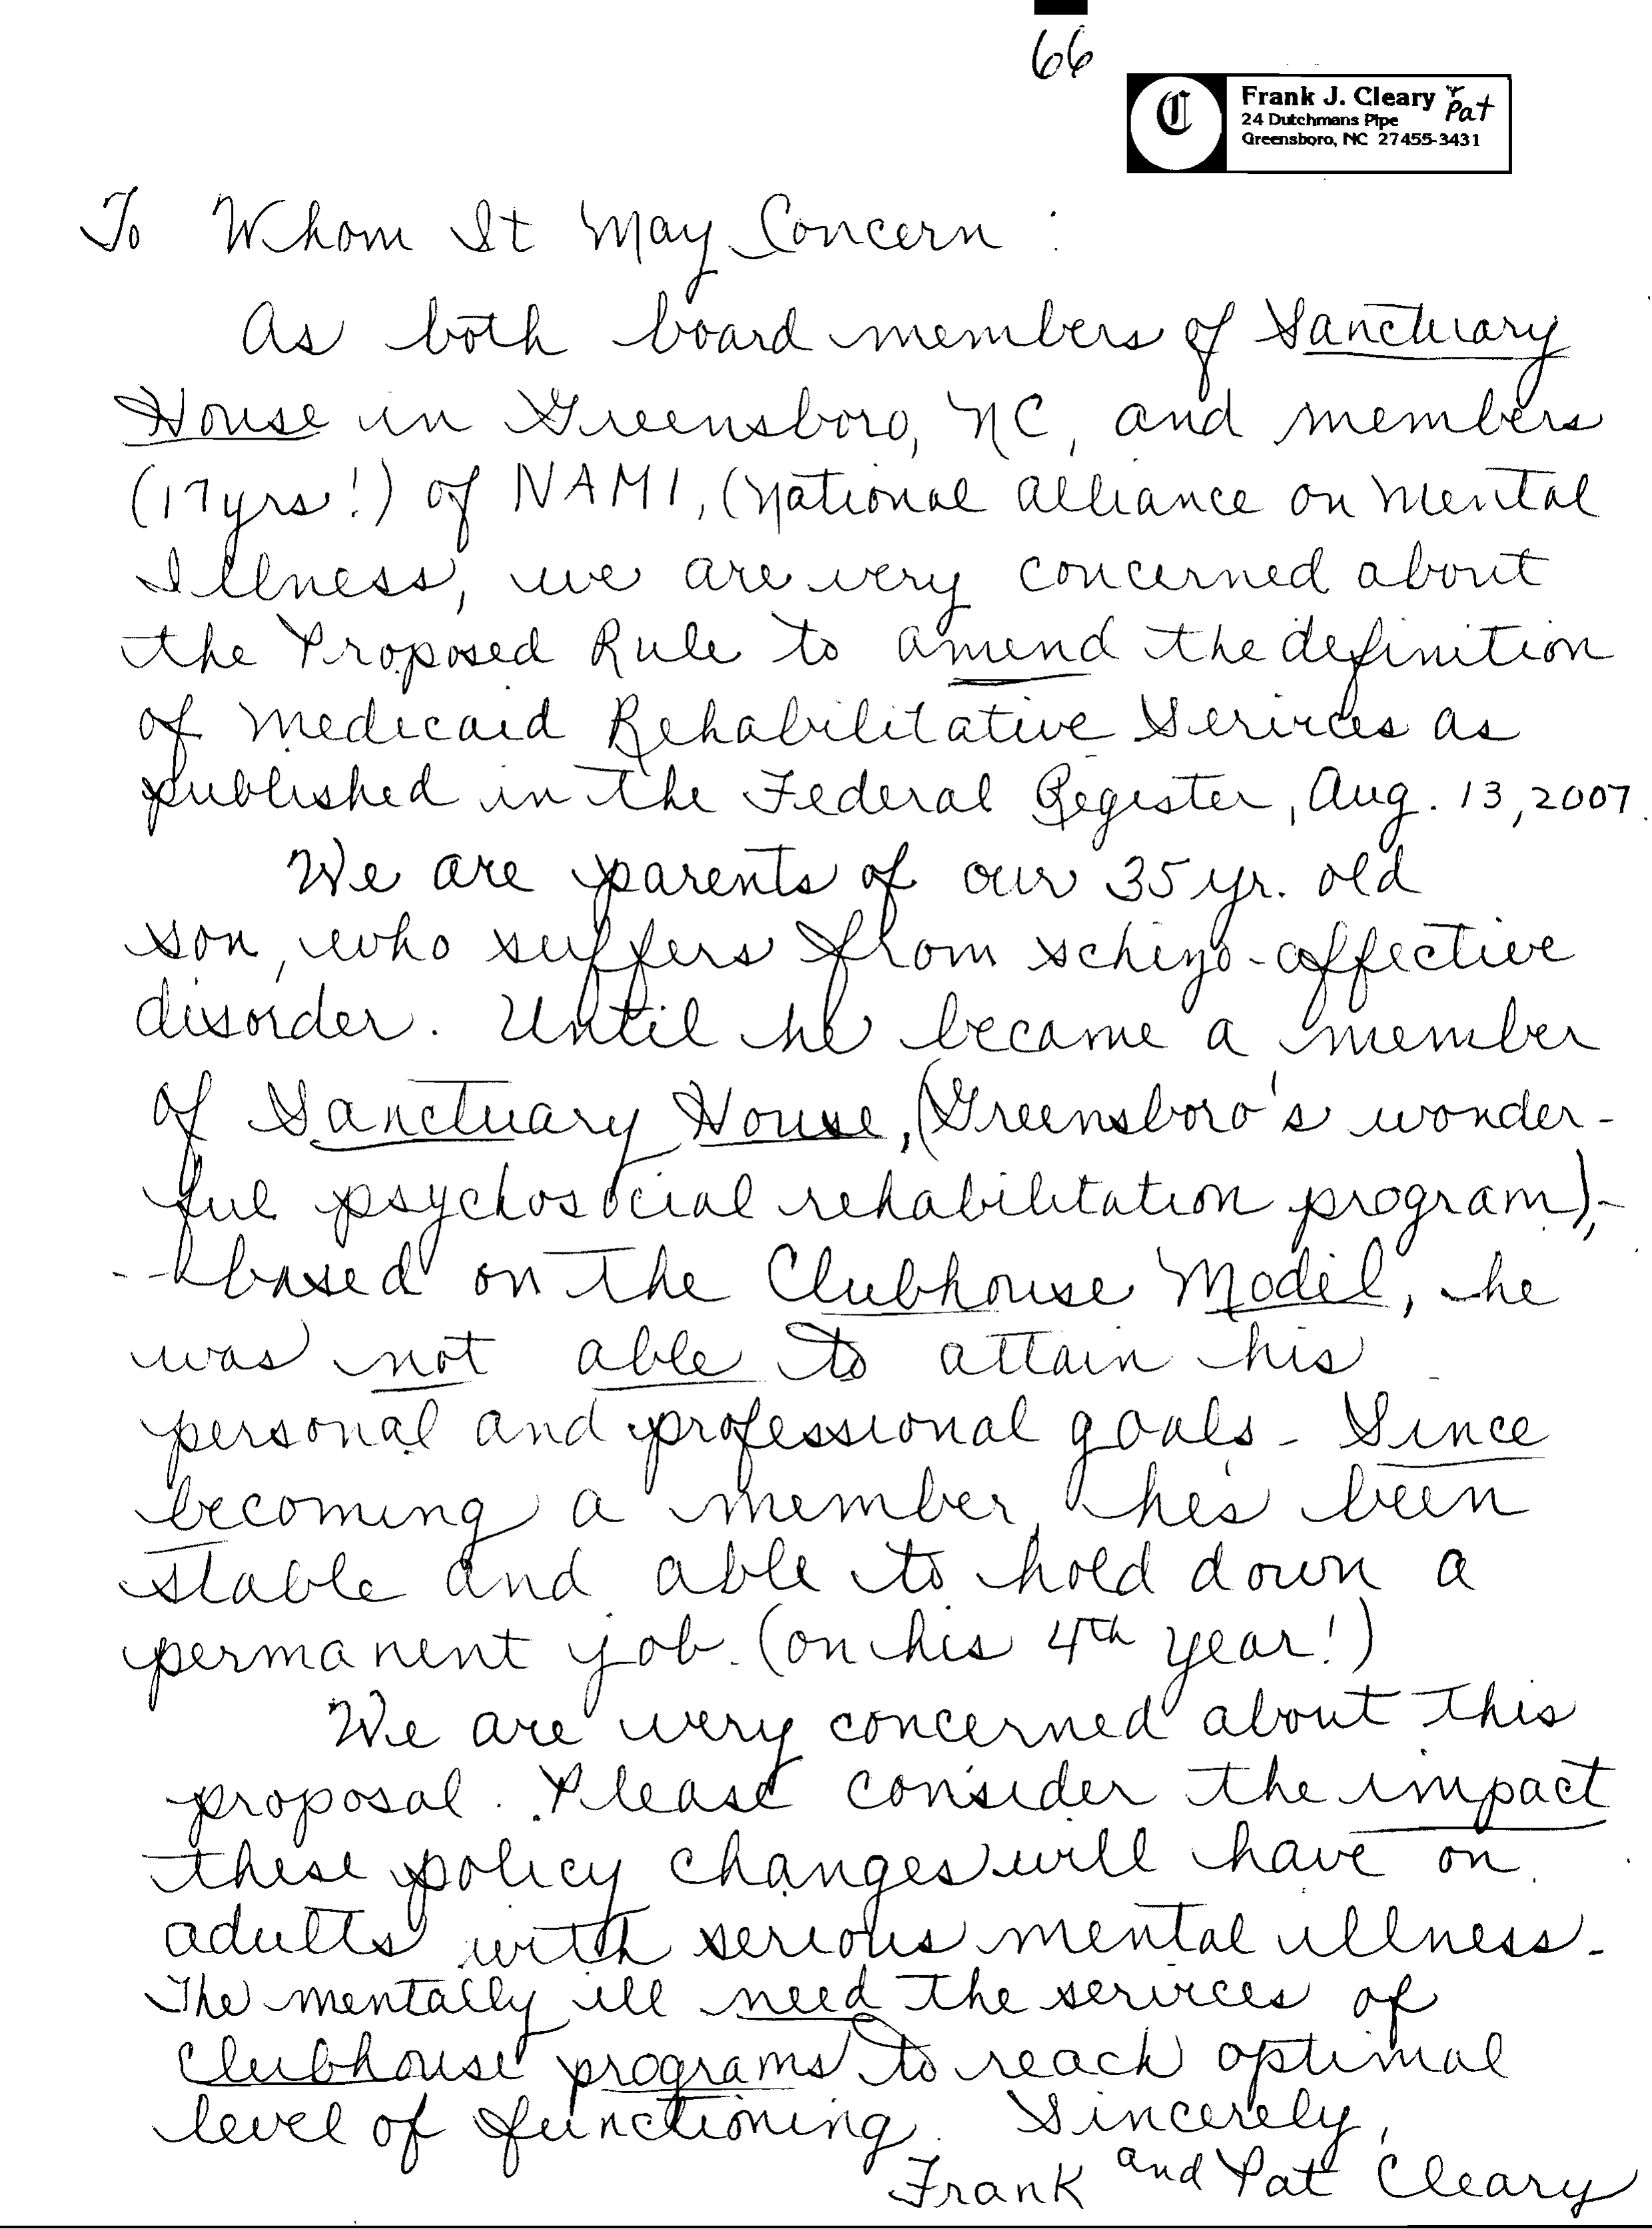 66
C
Frank J. Cleary & Pat
24 Dutchmans Pipe
Greensboro, NC 27455-3431
To Whom It May Concern :
As both board members of Sanctuary
House in Greensboro, NC, and members
(17yrs!) of NAMI, (National Alliance on Mental
Illness, we are very concerned about
the Proposed Rule to amend the definition
of Medicaid Rehabilitative Services as
published in the Federal Register, Aug. 13, 2007.
We are parents of our 35 yr. old
son, who suffers from schizo-affective
disorder. Until he became a member
of Sanctuary House, (Greensboro's wonder-
ful psychosocial rehabilitation program),-
--based on the Clubhouse Model, he
was not able to attain his
personal and professional goals - Since
becoming a member, he's been
stable and able to hold down a
permanent job. (on his 4th year!)
We are very concerned about this
proposal. Please consider the impact
these policy changes will have on
adults with serious mental illness.
The mentally ill need the services of
clubhouse programs to reach optimal
level of functioning. Sincerely,
Frank and Pat Cleary